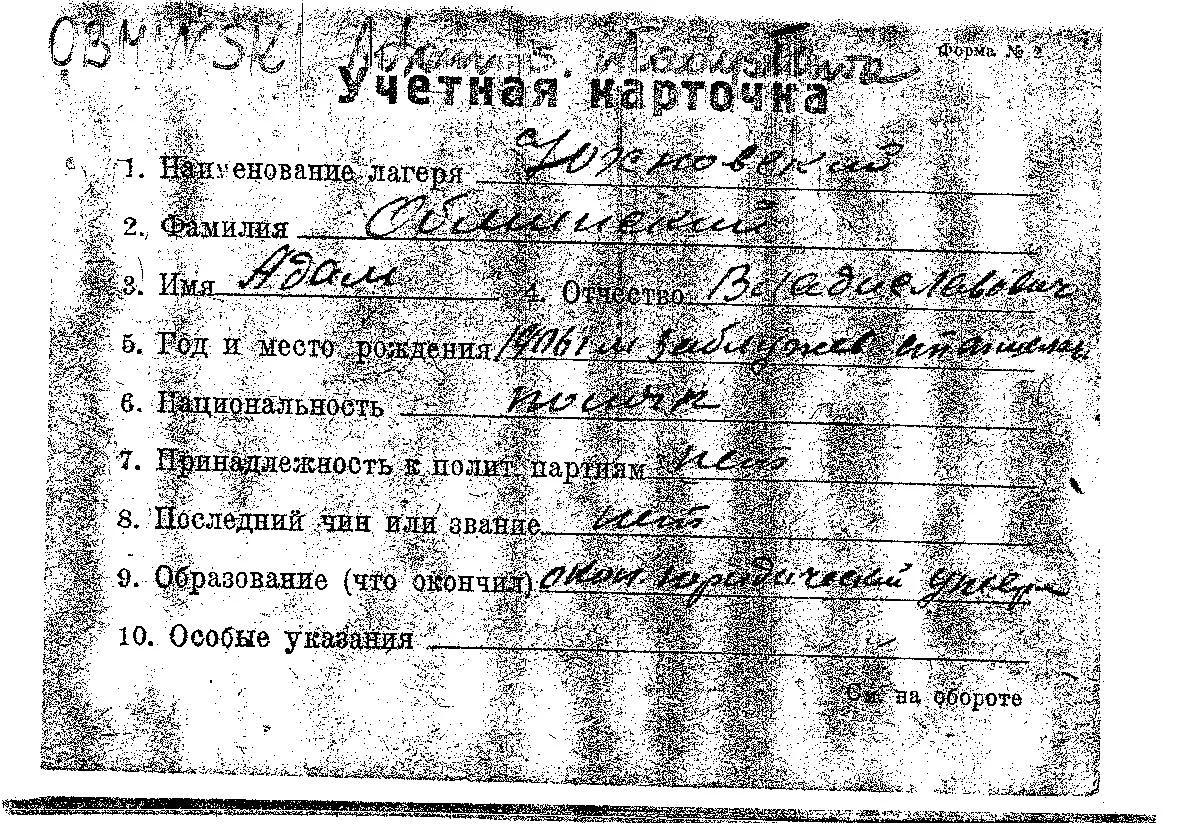 Форма № 2
Учетная карточка
1. Наименование лагеря Южновский
2. Фамилия
3. Имя Адам 4. Отчество Владиславович
5. Год и место рождения 1906 г
6. Национальность поляк
7. Принадлежность к полит партиям нет
8. Последний чин или звание нет
9. Образование (что окончил) окон. юридический
10. Особые указания
См. на обороте